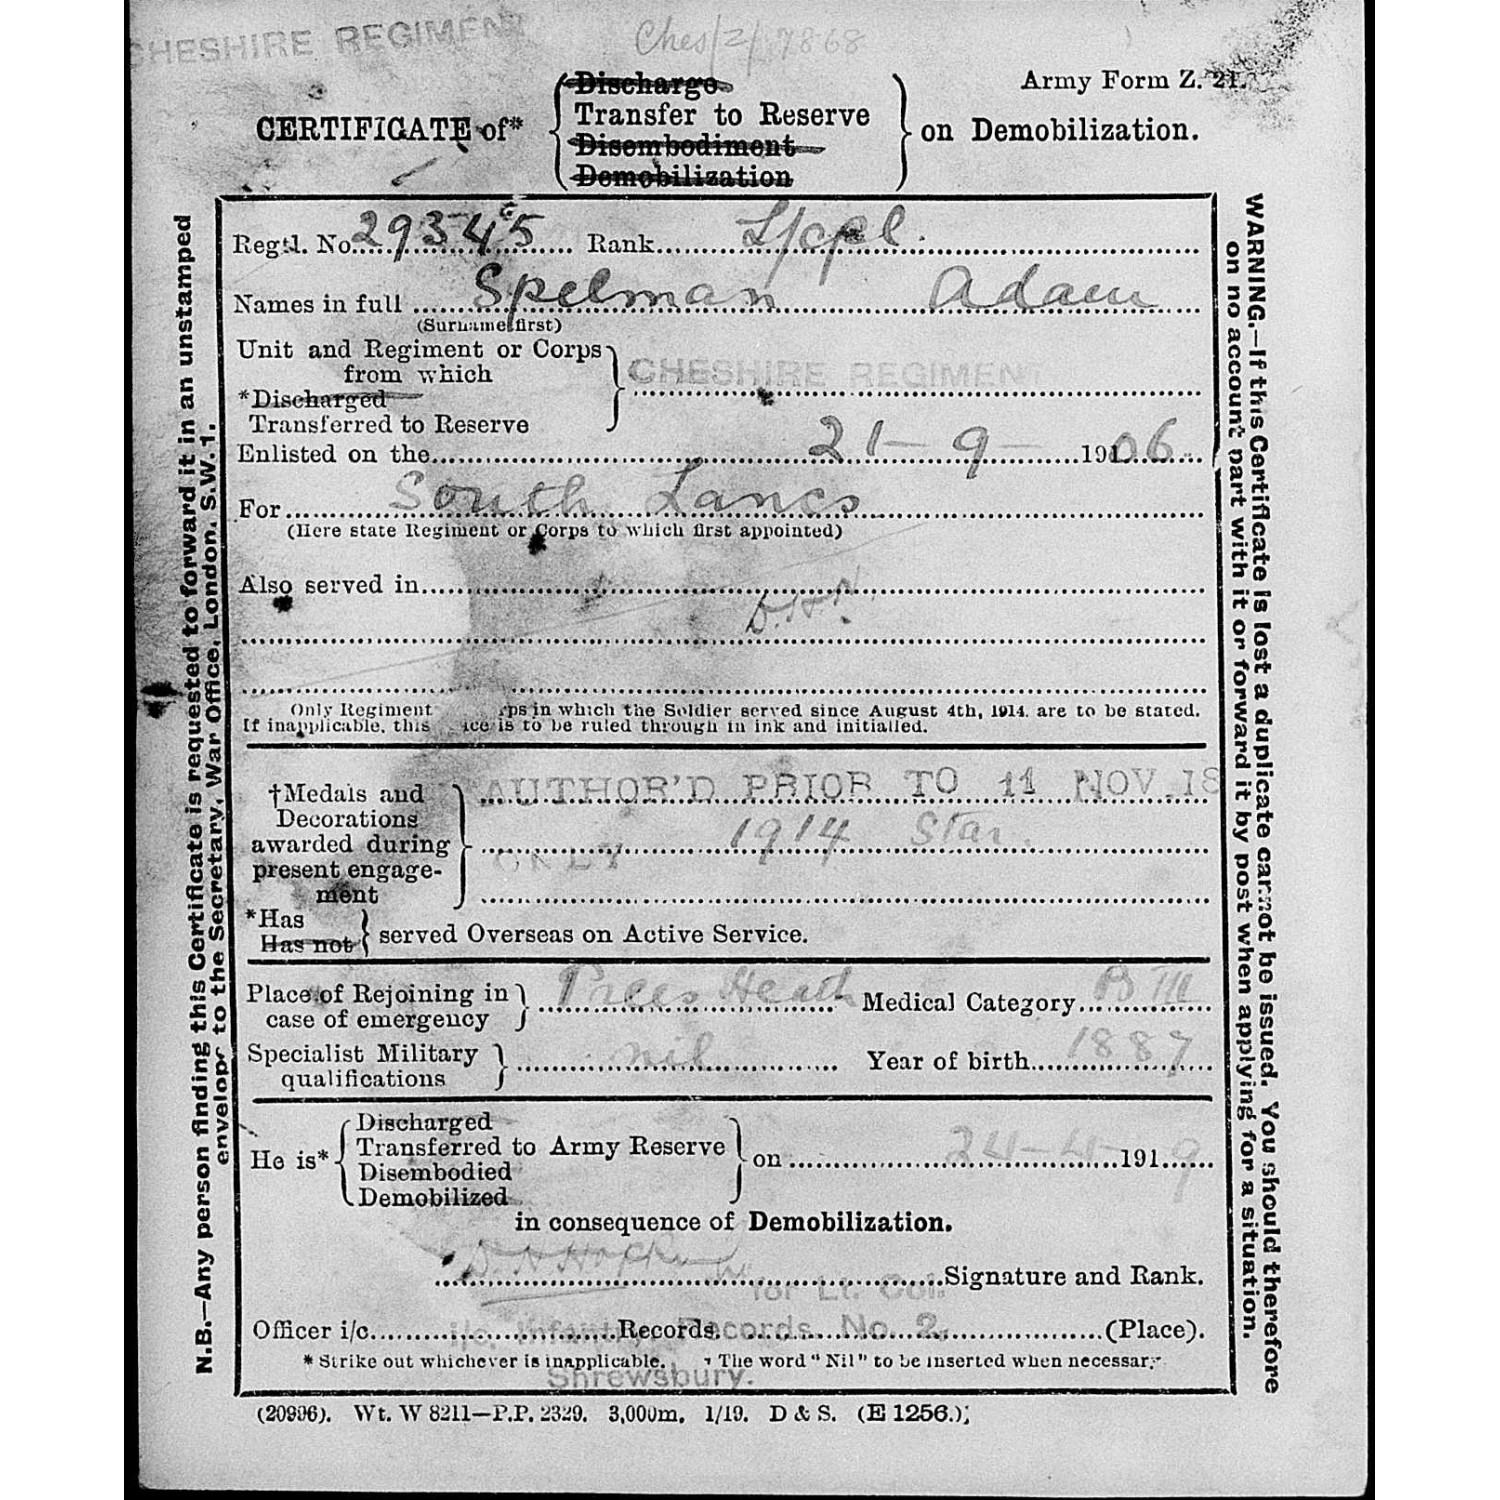 CHESHIRE REGIMENT
Ches/2/7868
Army Form Z. 21.
CERTIFICATE of* { Discharge
Transfer to Reserve
Disembodiment
Demobilization } on Demobilization.
Regtl. No. 29345 Rank L/cpl.
Names in full Spelman Adam
(Surname first)
Unit and Regiment or Corps
from which
*Discharged
Transferred to Reserve } CHESHIRE REGIMENT
Enlisted on the 21-9-1906.
For South Lancs
(Here state Regiment or Corps to which first appointed)
Also served in
Only Regiment rps in which the Soldier served since August 4th, 1914. are to be stated.
If inapplicable, this ace is to be ruled through in ink and initialled.
†Medals and
Decorations
awarded during
present engage-
ment } AUTHOR'D PRIOR TO 11 NOV 18
1914 Star.
ONLY
*Has
Has not } served Overseas on Active Service.
Place of Rejoining in
case of emergency } Prees Heath Medical Category B III
Specialist Military
qualifications } nil Year of birth 1887
He is* { Discharged
Transferred to Army Reserve
Disembodied
Demobilized } on 24-4-1919
in consequence of Demobilization.
Signature and Rank.
for Lt. Col.
Officer i/c Records (Place).
i/c. Infantry Records No. 2,
* Strike out whichever is inapplicable. † The word "Nil" to be inserted when necessary.
Shrewsbury.
(20996). Wt. W 8211—P.P. 2329. 3,000m. 1/19. D & S. (E 1256.);
N.B.—Any person finding this Certificate is requested to forward it in an unstamped
envelope to the Secretary, War Office, London, S.W. 1.
WARNING.—If this Certificate is lost a duplicate cannot be issued. You should therefore
on no account part with it or forward it by post when applying for a situation.